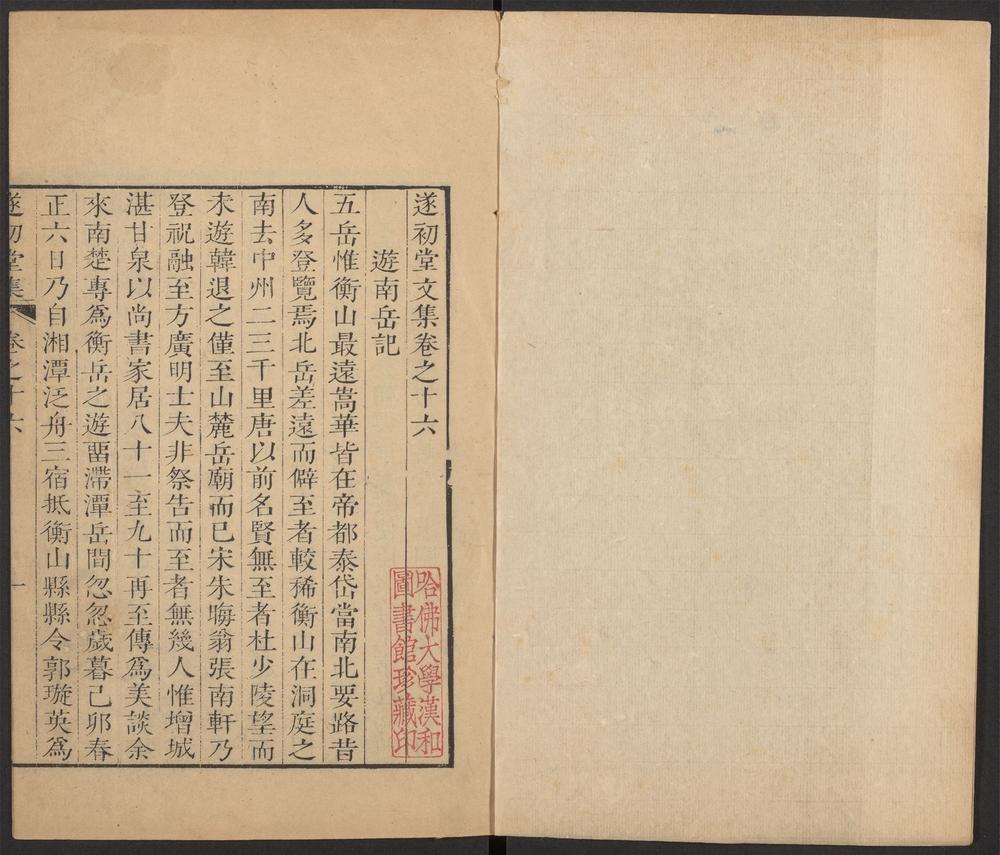 遂初堂文集卷之十六
遊南岳記
五岳惟衡山最遠嵩華皆在帝都泰岱當南北要路昔
人多登覽焉北岳差遠而僻至者較稀衡山在洞庭之
南去中州二三千里唐以前名賢無至者杜少陵望而
未遊韓退之僅至山麓岳廟而已宋朱晦翁張南軒乃
登祝融至方廣明士夫非祭告而至者無幾人惟增城
湛甘泉以尚書家居八十一至九十再至傳為美談余
來南楚專為衡岳之遊畱滯潭岳間忽忽歲暮己卯春
正六日乃自湘潭泛舟三宿抵衡山縣縣令郭璇英為
遂初堂集
卷之十六
一
哈佛大學漢和
圖書館珍藏印